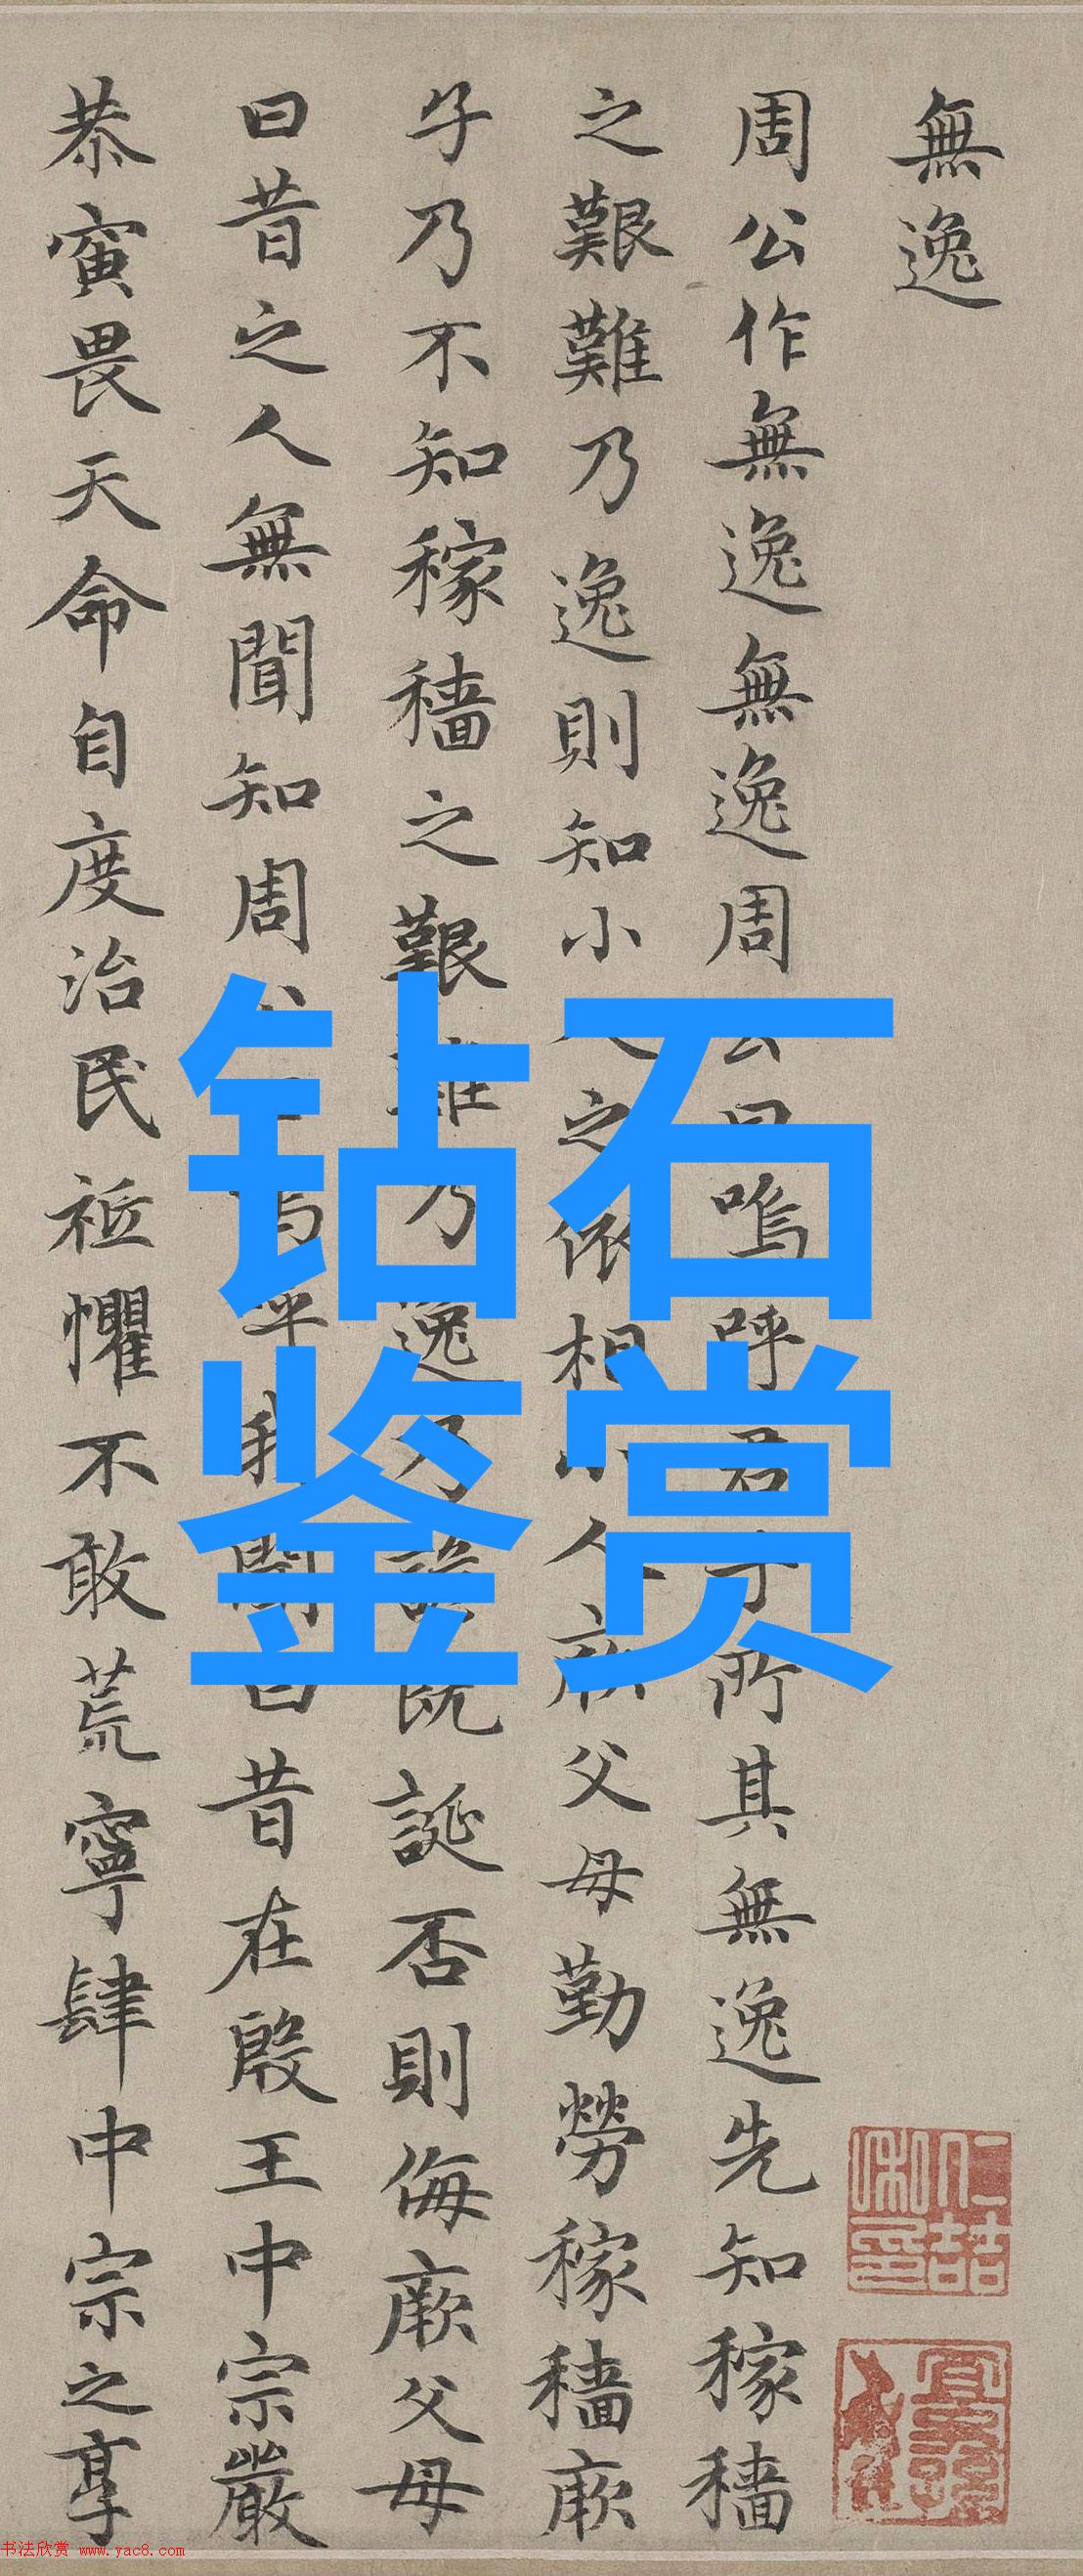 無逸
周公作無逸無逸周公曰嗚呼君子所其無逸先知稼穡
之艱難乃逸則知小人之依相小人厥父母勤勞稼穡厥
子乃不知稼穡之艱難乃逸乃諺既誕否則侮厥父母
曰昔之人無聞知周公曰嗚呼我聞曰昔在殷王中宗嚴
恭寅畏天命自度治民祗懼不敢荒寧肆中宗之享
钻石
鉴赏
书法欣赏 www.yac8.com